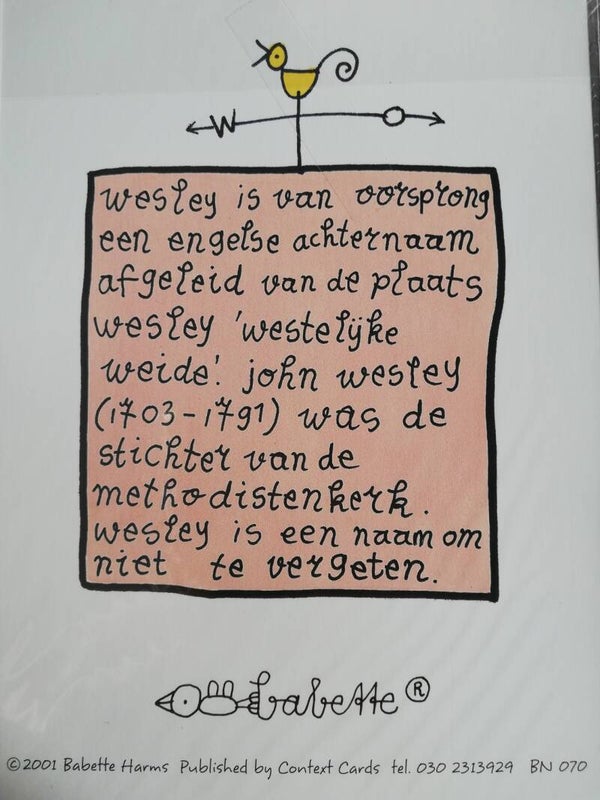 W O
wesley is van oorsprong
een engelse achternaam
afgeleid van de plaats
wesley 'westelijke
weide'. john wesley
(1703-1791) was de
stichter van de
methodistenkerk.
wesley is een naam om
niet te vergeten.
babette ®
©2001 Babette Harms Published by Context Cards tel. 030 2313929 BN 070